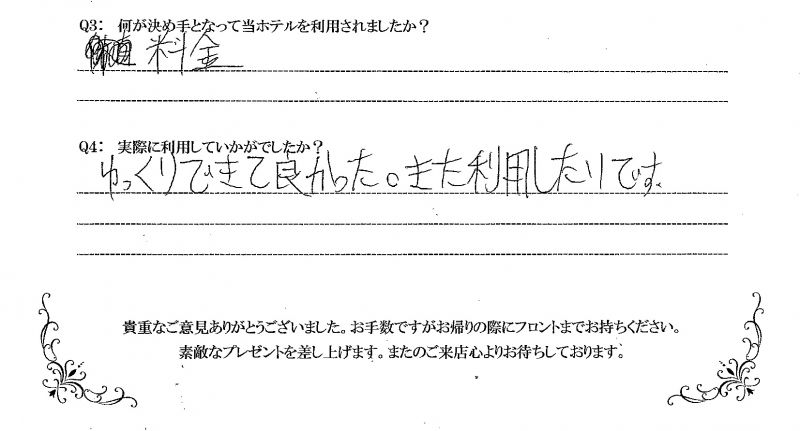 Q3： 何が決め手となって当ホテルを利用されましたか？
料金
Q4： 実際に利用していかがでしたか？
ゆっくりできて良かった。また利用したいです。
貴重なご意見ありがとうございました。お手数ですがお帰りの際にフロントまでお持ちください。
素敵なプレゼントを差し上げます。またのご来店心よりお待ちしております。